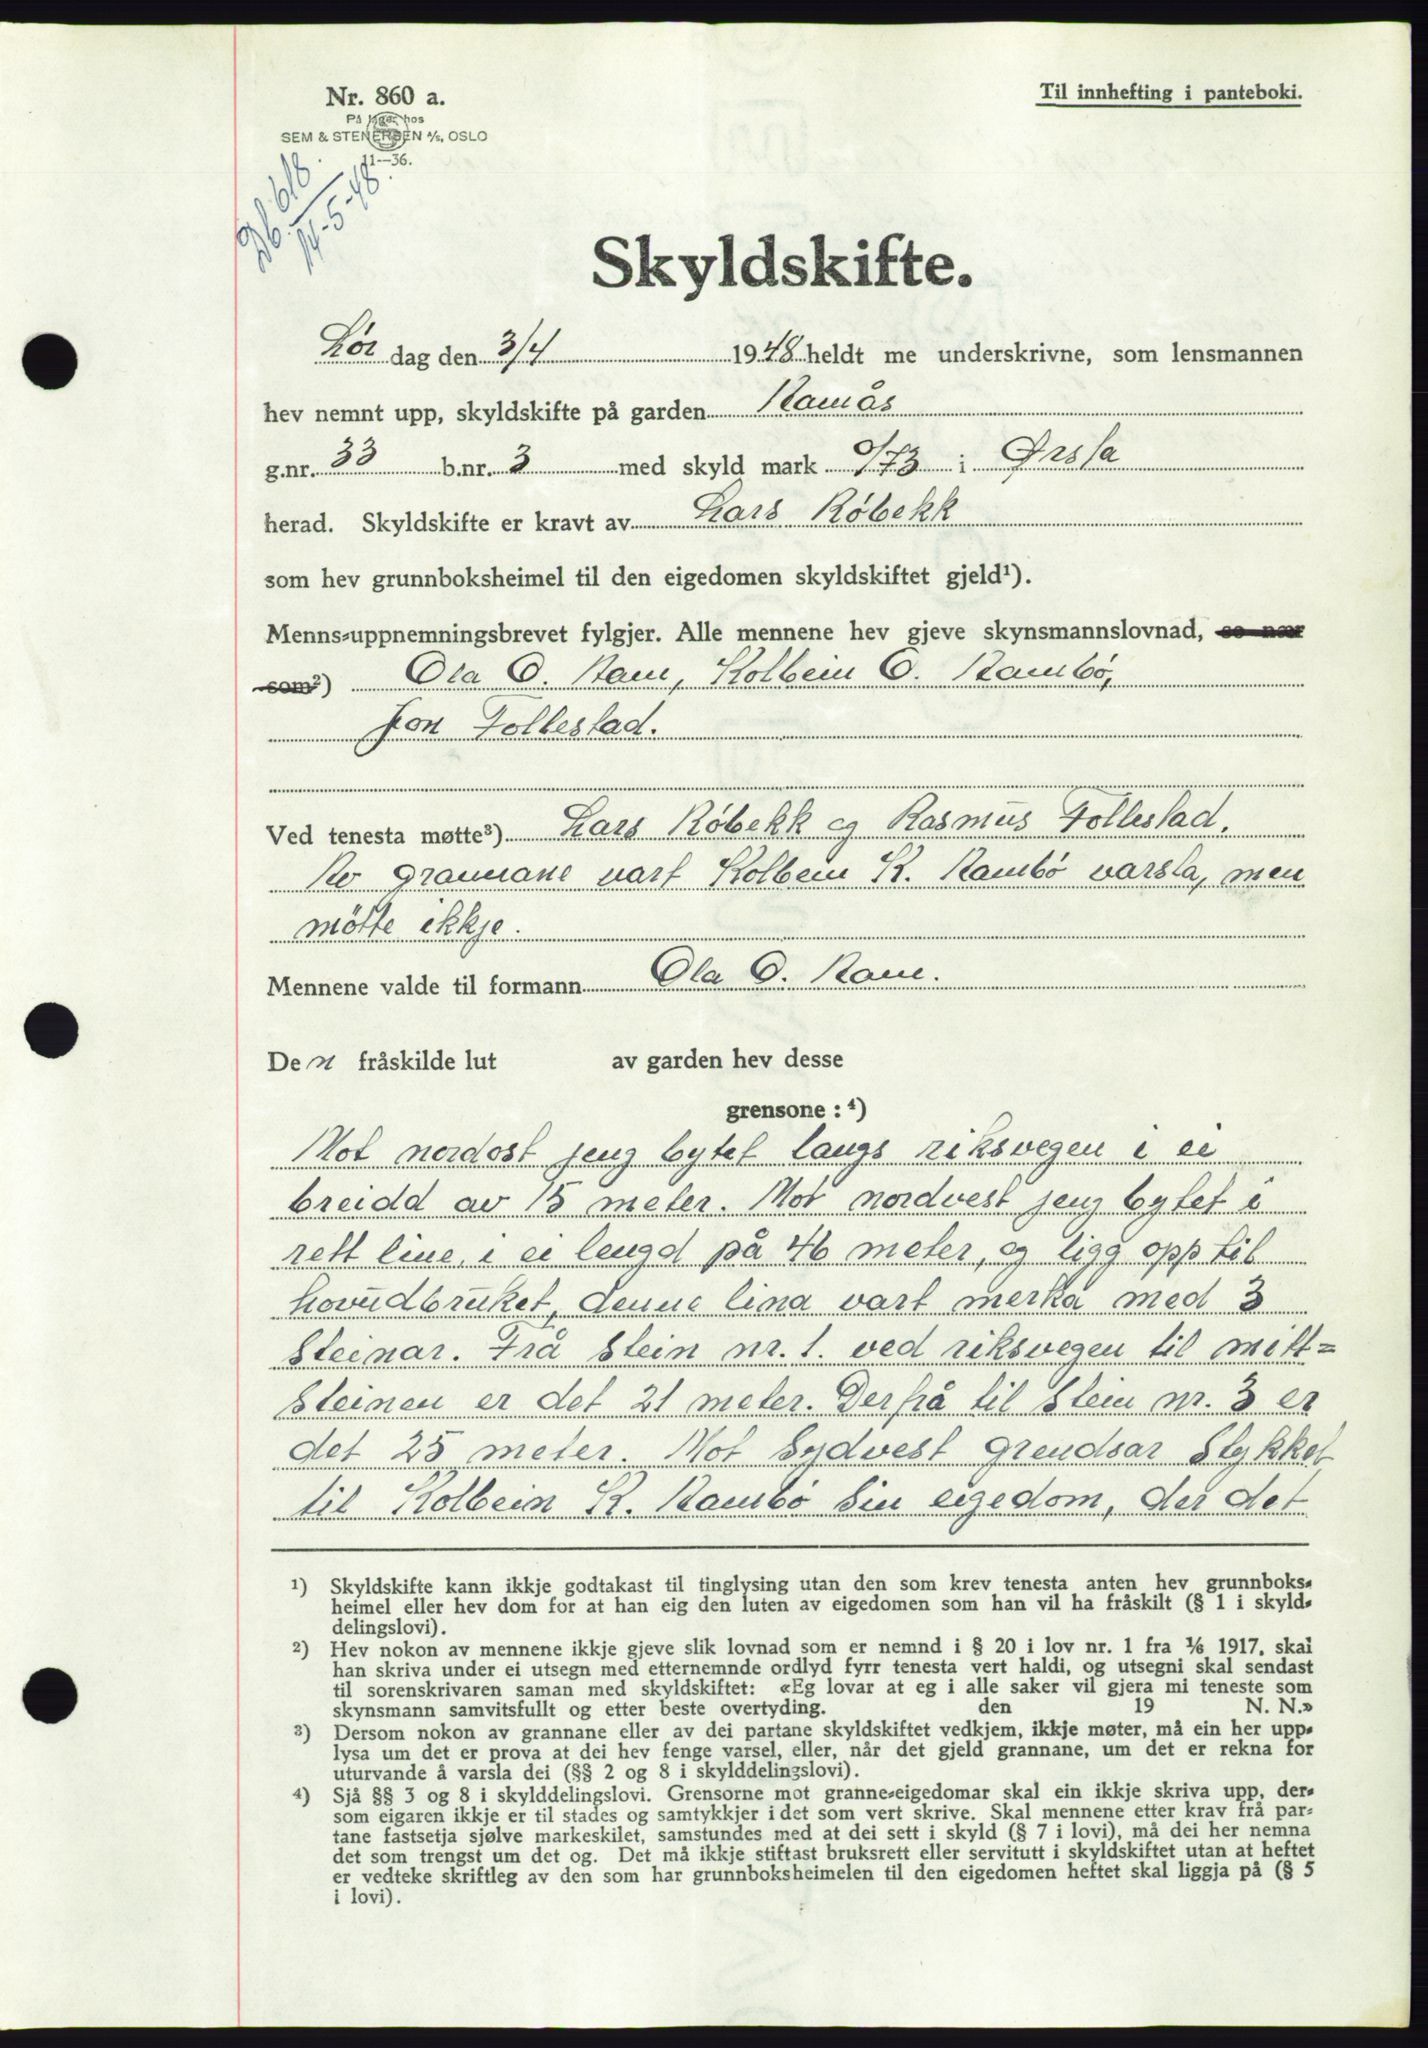 Nr. 860 a.
På lager hos
SEM & STENERSEN A/S, OSLO
11--36.
Til innhefting i panteboki.
Db. 618.
14-5-48.
Skyldskifte.
Lør dag den 3/4 1948 heldt me underskrivne, som lensmannen
hev nemnt upp, skyldskifte på garden Ramås
g.nr. 33 b.nr. 3 med skyld mark 0/73 i Ørsta
herad. Skyldskifte er kravt av Lars Røbekk
som hev grunnboksheimel til den eigedomen skyldskiftet gjeld¹).
Menns-uppnemningsbrevet fylgjer. Alle mennene hev gjeve skynsmannslovnad, so nær
som²) Ola O. Ram, Kolbein O. Rambø,
Jon Follestad.
Ved tenesta møtte³) Lars Røbekk og Rasmus Follestad.
Av grannane vart Kolbein K. Rambø varsla, men
møtte ikkje.
Mennene valde til formann Ola O. Ram.
Den fråskilde lut av garden hev desse
grensone : ⁴)
Mot nordost jeng bytet langs riksvegen i ei
breidd av 15 meter. Mot nordvest jeng bytet i
rett line, i ei lengd på 46 meter, og ligg opp til
hovudbruket, denne lina vart merka med 3
steinar. Frå stein nr. 1. ved riksvegen til mitt=
steinen er det 21 meter. Derfrå til stein nr. 3 er
det 25 meter. Mot sydvest grendsar stykket
til Kolbein K. Rambø sin eigedom, der det
¹) Skyldskifte kann ikkje godtakast til tinglysing utan den som krev tenesta anten hev grunnboks-
heimel eller hev dom for at han eig den luten av eigedomen som han vil ha fråskilt (§ 1 i skyld-
delingslovi).
²) Hev nokon av mennene ikkje gjeve slik lovnad som er nemnd i § 20 i lov nr. 1 fra 1/6 1917, skal
han skriva under ei utsegn med etternemnde ordlyd fyrr tenesta vert haldi, og utsegni skal sendast
til sorenskrivaren saman med skyldskiftet: «Eg lovar at eg i alle saker vil gjera mi teneste som
skynsmann samvitsfullt og etter beste overtyding. den 19 N. N.»
³) Dersom nokon av grannane eller av dei partane skyldskiftet vedkjem, ikkje møter, må ein her upp-
lysa um det er prova at dei hev fenge varsel, eller, når det gjeld grannane, um det er rekna for
uturvande å varsla dei (§§ 2 og 8 i skylddelingslovi).
⁴) Sjå §§ 3 og 8 i skylddelingslovi. Grensorne mot granne-eigedomar skal ein ikkje skriva upp, der-
som eigaren ikkje er til stades og samtykkjer i det som vert skrive. Skal mennene etter krav frå par-
tane fastsetja sjølve markeskilet, samstundes med at dei sett i skyld (§ 7 i lovi), må dei her nemna
det som trengst um det og. Det må ikkje stiftast bruksrett eller servitutt i skyldskiftet utan at heftet
er vedteke skriftleg av den som har grunnboksheimelen til den eigedomen heftet skal liggja på (§ 5
i lovi).